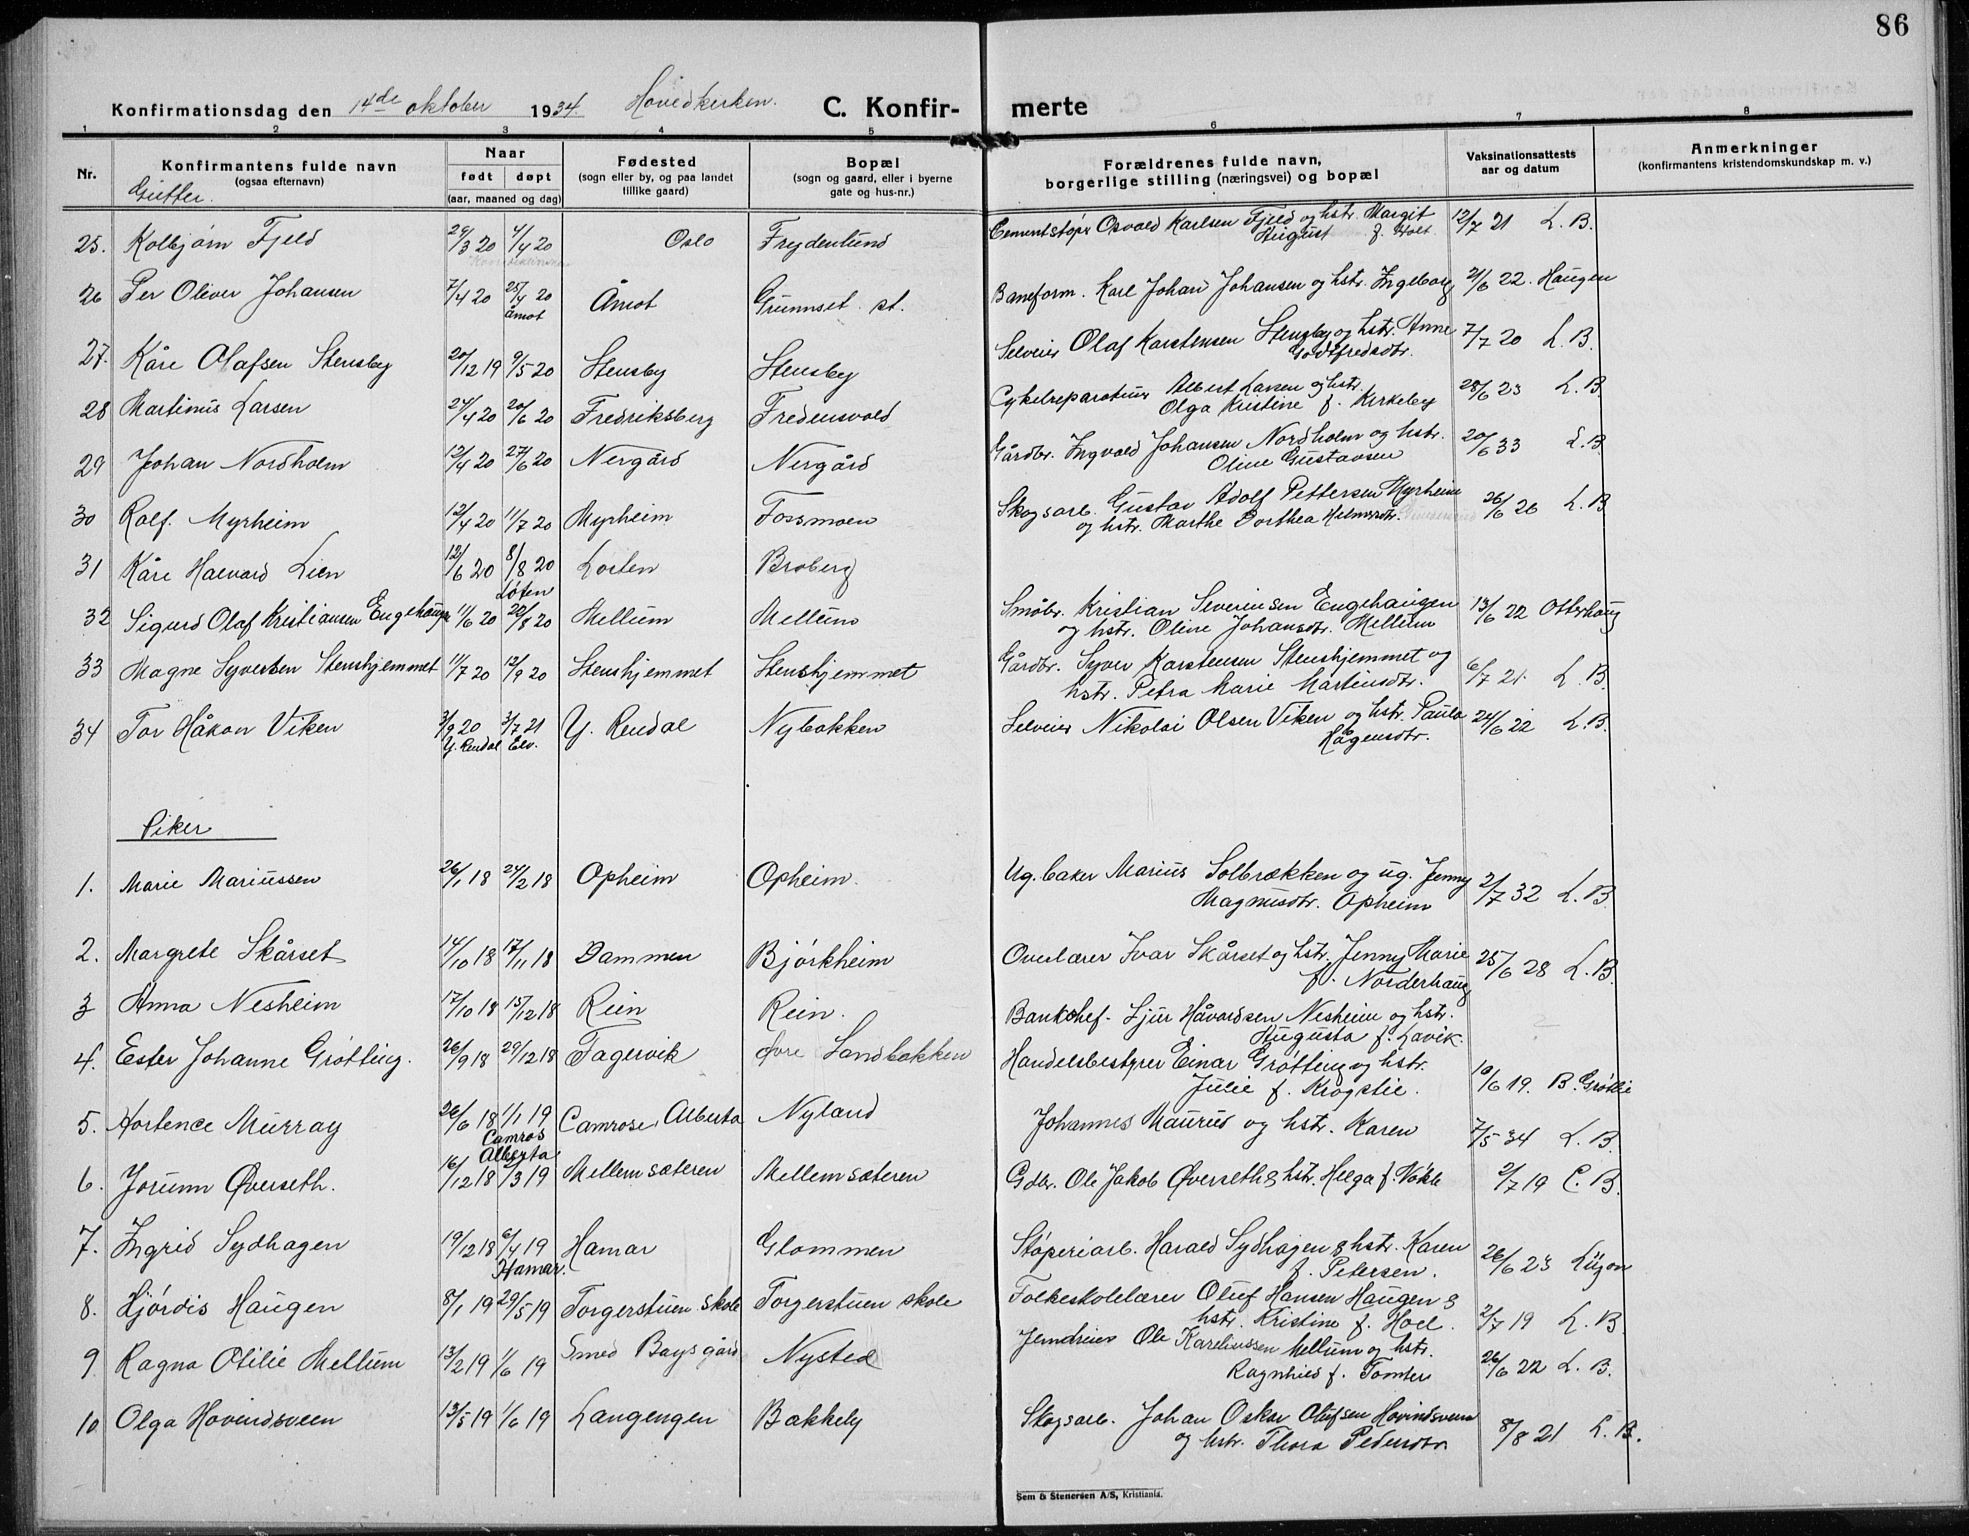 86
Konfirmationsdag den 14de oktober 1934. Hovedkirken. C. Konfir- merte
1 2 3 4 5 6 7 8
Nr. Konfirmantens fulde navn (ogsaa efternavn) Naar født døpt (aar, maaned og dag) Fødested (sogn eller by, og paa landet tillike gaard) Bopæl (sogn og gaard, eller i byerne gate og hus-nr.) Forældrenes fulde navn, borgerlige stilling (næringsvei) og bopæl Vaksinationsattests aar og datum Anmerkninger (konfirmantens kristendomskundskap m. v.)
Gutter.
25. Kolbjørn Fjeld 29/3 20 4/4 20 Oslo Frydenlund Cementstøper Osvald Karlsen Fjeld og hstr. Margit August f. Holt 12/7 21 L. B.
26 Per Oliver Johansen 7/4 20 25/4 20 Åmot Åmot Grunnset st. Baneform. Karl Johan Johansen og hstr. Ingeborg 21/6 22. Haugen
27. Kåre Olafsen Stensby 20/12 19 9/5 20 Stensby Stensby Selveier Olaf Karstensen Stensby og hstr. Anne Godtfredsdtr. 7/7 20 L. B.
28 Martinus Larsen 24/4 20 20/6 20 Fredriksberg Fredensvold Cykelreparatør Albert Larsen og hstr. Olga Kristine f. Kirkeby 28/6 23 L. B.
29 Johan Nordholm 12/4 20 27/6 20 Nergård Nergård Gårdbr. Ingvald Johansen Nordholm og hstr. Oline Gustavsen 20/6 33 L. B.
30 Rolf Myrheim 12/4 20 11/7 20 Myrheim Fossmoen Skogsarb. Gustav Adolf Pettersen Myrheim og hstr. Marthe Dorthea Helmersdtr. 26/6 26 L. B.
31 Kåre Halvard Lien 12/6 20 8/8 20 Løten Losten Broberg
32 Sigurd Olaf Kristiansen Engehaugen 11/6 20 20/8 20 Mellum Mellum Småbr. Kristian Severinsen Engehaugen og hstr. Oline Johansdtr. Mellum 13/6 22 Otterhaug
33 Magne Syversen Stenshjemmet 11/7 20 12/9 20 Stenshjemmet Stenshjemmet Gårdbr. Syver Karstensen Stenshjemmet og hstr. Petra Marie Martinsdtr. 6/7 21. L. B.
34 Tor Håkon Viken 3/9 20 Y. Rendal 3/7 21 Elv. Y. Rendal Nybakken Selveier Nikolai Olsen Viken og hstr. Paula Hagensdtr. 24/6 22 L. B.
Piker
1. Marie Mariussen 26/1 18 24/2 18 Opheim Opheim. Ug. baker Marius Solbrækken og ug. Jenny Magnusdtr. Opheim 2/7 32 L. B.
2. Margrete Skårset 14/10 18 17/11 18 Dammen Bjørkheim Overlærer Ivar Skårset og hstr. Jenny Marie f. Norderhaug 25/6 28 L. B.
3 Anna Nesheim 17/10 18 15/12 18 Rein Rein. Bankchef. Sjur Håvardsen Nesheim og hstr. Augusta f. Lavik.
4. Ester Johanne Grøtting. 26/9 18 29/12 18 Fagervik Øvre Sandbakken Handelsbestyrer Einar Grøtting og hstr. Julie f. Krogstie. 10/6 19. B. Grøtlie
5. Hortence Murray 26/6 18 1/1 19 Camros Alberta Camrose, Alberta Nyland Johannes Maurud og hstr. Karen 7/5 34 L. B.
6. Jorunn Øverseth. 16/12 18 2/3 19 Mellemsæteren Mellemsæteren Gdbr. Ole Jakob Øverseth & hstr. Helga f. Nøkle 2/7 19 L. B.
7. Ingrid Sydhagen 19/12 18 6/4 19 Hamar. Hamar Glommen Støperiarb. Harald Sydhagen & hstr. Karen f. Petersen. 26/6 23 Lügon
8. Hjørdis Haugen 8/1 19 29/5 19 Torgerstuen skole Torgerstuen skole Folkeskolelærer Oluf Hansen Haugen & hstr. Kristine f. Hoel. 2/7 19 L. B.
9 Ragna Otilie Mellum 13/2 19 1/6 19 Smed Baysgård Nysted Jerndreier Ole Karelivssen Mellum og hstr. Ragnhild f. Tomter 26/6 22 L. B.
10 Olga Hovindsveen 13/5 19 1/6 19 Langengen Bakkely Skogsarb. Johan Oskar Olufsen Hovindsveen og hstr. Thora Pedersdtr 8/8 21 L. B.
Sem & Stenersen A/S, Kristiania.